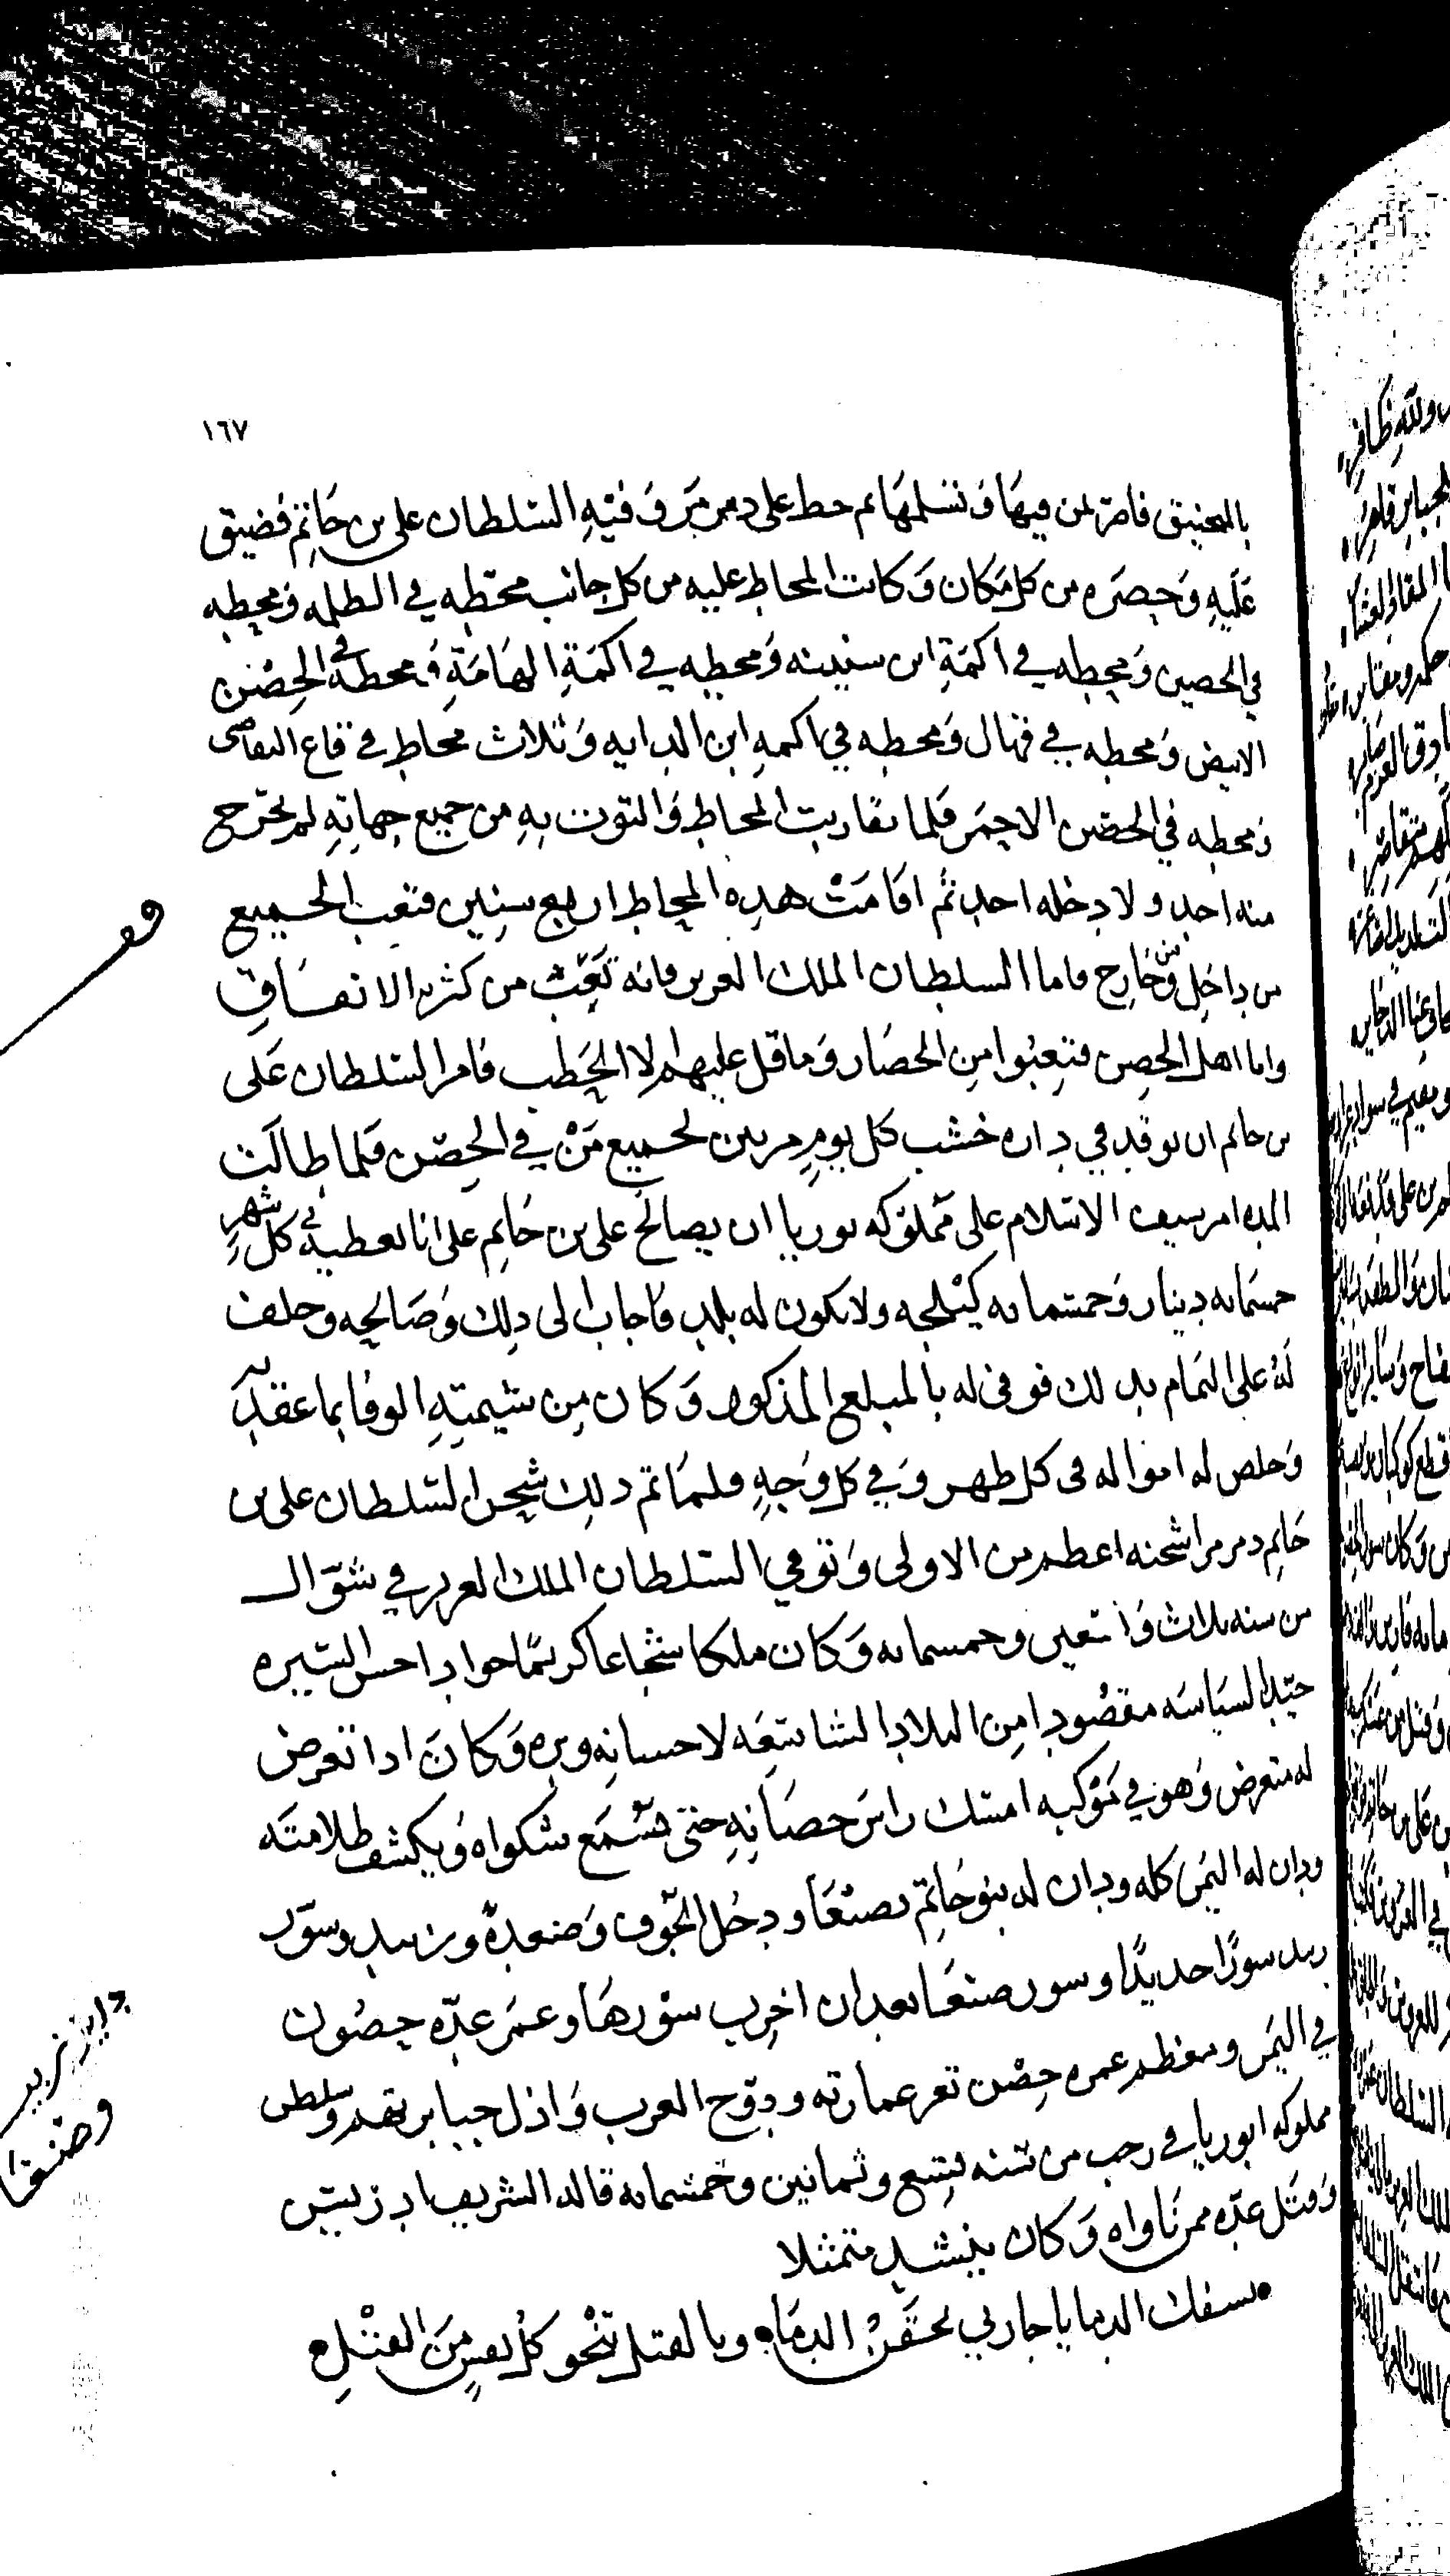 ١٦٧
بالمنجنيق فاضر بمن فيها وتسلمها ثم حط على دمرمر وفيه السلطان على بن حاتم فضيق
عليه وحصره من كل مكان وكانت المحاط عليه من كل جانب محطه في الظلمه ومحطه
في الحصين ومحطه في اكمة ابن سنينه ومحطه في اكمة الهامة ومحطه في الحصن
الابيض ومحطه في ومحطه في اكمه ابن الدايه وثلاث محاط في قاع
ومحطه في الحصن الاحمر فلما تقاربت المحاط والتوت به من جميع جهاته لم يخرج
منه احد ولا دخله احد ثم اقامت هذه المحاط اربع سنين فتعب الجميع
من داخل ومن خارج فاما السلطان الملك العزيز فانه تعب من كثره الانفاق
واما اهل الحصن فتعبوا من الحصار وما قل عليهم الا الحطب فامر السلطان على
بن حاتم ان يوقد في داره خشب كل يوم مرتين لجميع من في الحصن فلما طالت
المده امر سيف الاسلام على مملوكه بوريا ان يصالح على بن حاتم على انا نعطيه في كل شهر
خمسمايه دينار وخمسمايه كيلجه ولا يكون له بلد فاجاب الى ذلك وصالحه وحلف
له على التمام بذلك فوفى له بالمبلغ المذكور وكان من شيمته الوفا بما عقد
وخلص له امواله في كل ظهر وفي كل وجه فلما تم ذلك شحن السلطان على بن
حاتم دمرمرا شحنه اعظم من الاولى وتوفي السلطان الملك العزيز في شوال
من سنه ثلاث وتسعين وخمسمايه وكان ملكا شجاعا كريما جوادا حسن السيره
جيد السياسه مقصودا من البلاد الشاسعه لاحسانه وبره وكان اذا تعرض
له متعرض وهو في موكبه امسك راس حصانه حتى يسمع شكواه ويكشف ظلامته
ودان له اليمن كله ودان له بنو حاتم بصنعا ودخل الجوف وصعده وزبيد وسور
زبيد سورا جديدا وسور صنعا بعد ان اخرب سورها وعمر عده حصون
في اليمن ومعظم عمره حصن تعز عمارته ودوخ العرب واذل جبابرتهم وسلطن
مملوكه ابوريا في رجب من سنه تسع وثمانين وخمسمايه قاله الشريف ادريس
وقتل عده ممن ناواه وكان ينشد متمثلا
بسفك الدما يا جارتي تحقن الدماء وبالقتل تنجو كل نفس من القتل
وصنعا